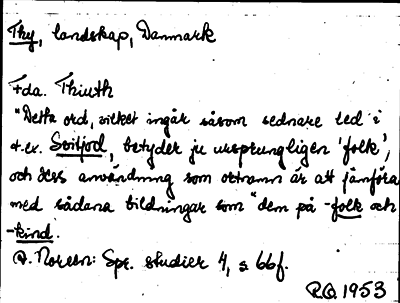 Thy, landskap, Danmark
Fda. Thiuth
"Detta ord, vilket ingår såsom sednare led i
t.ex. Svitjod, betyder ju ursprungligen 'folk',
och dess användning som ortnamn är att jämföra
med sådana bildningar som "dem på -folk och
-kind.
A. Noreen: Spr. studier 4, s. 66f.
RO 1953